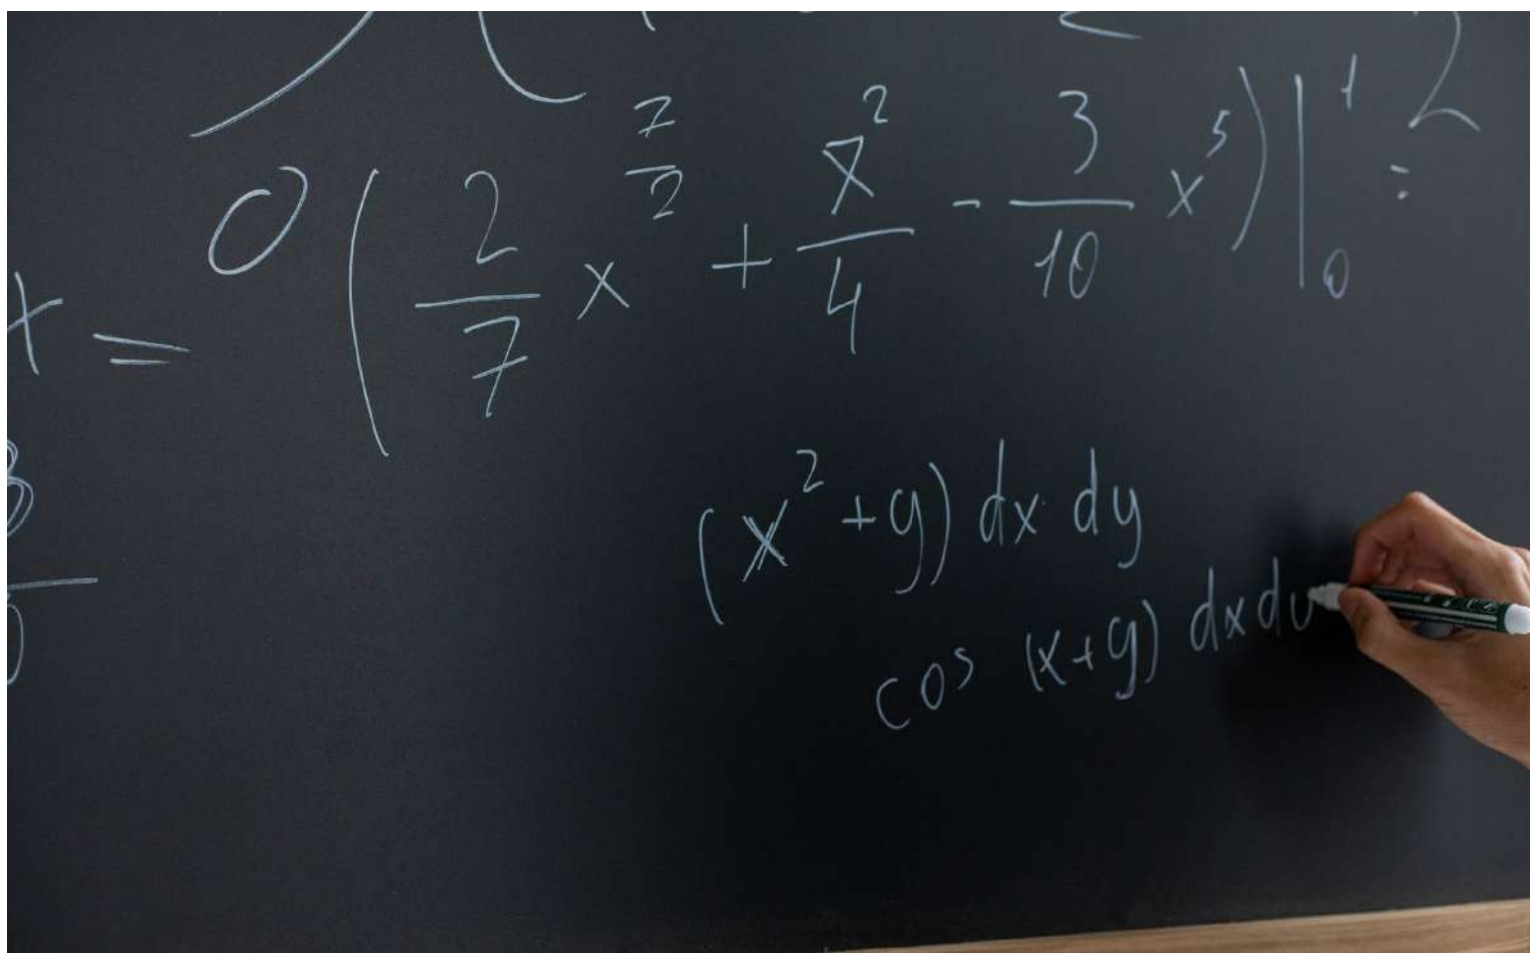 = 0 ( 2/7 x^(7/2) + x^2/4 - 3/10 x^5 ) |_0^1 =
(x^2 + y) dx dy
cos (x+y) dx d